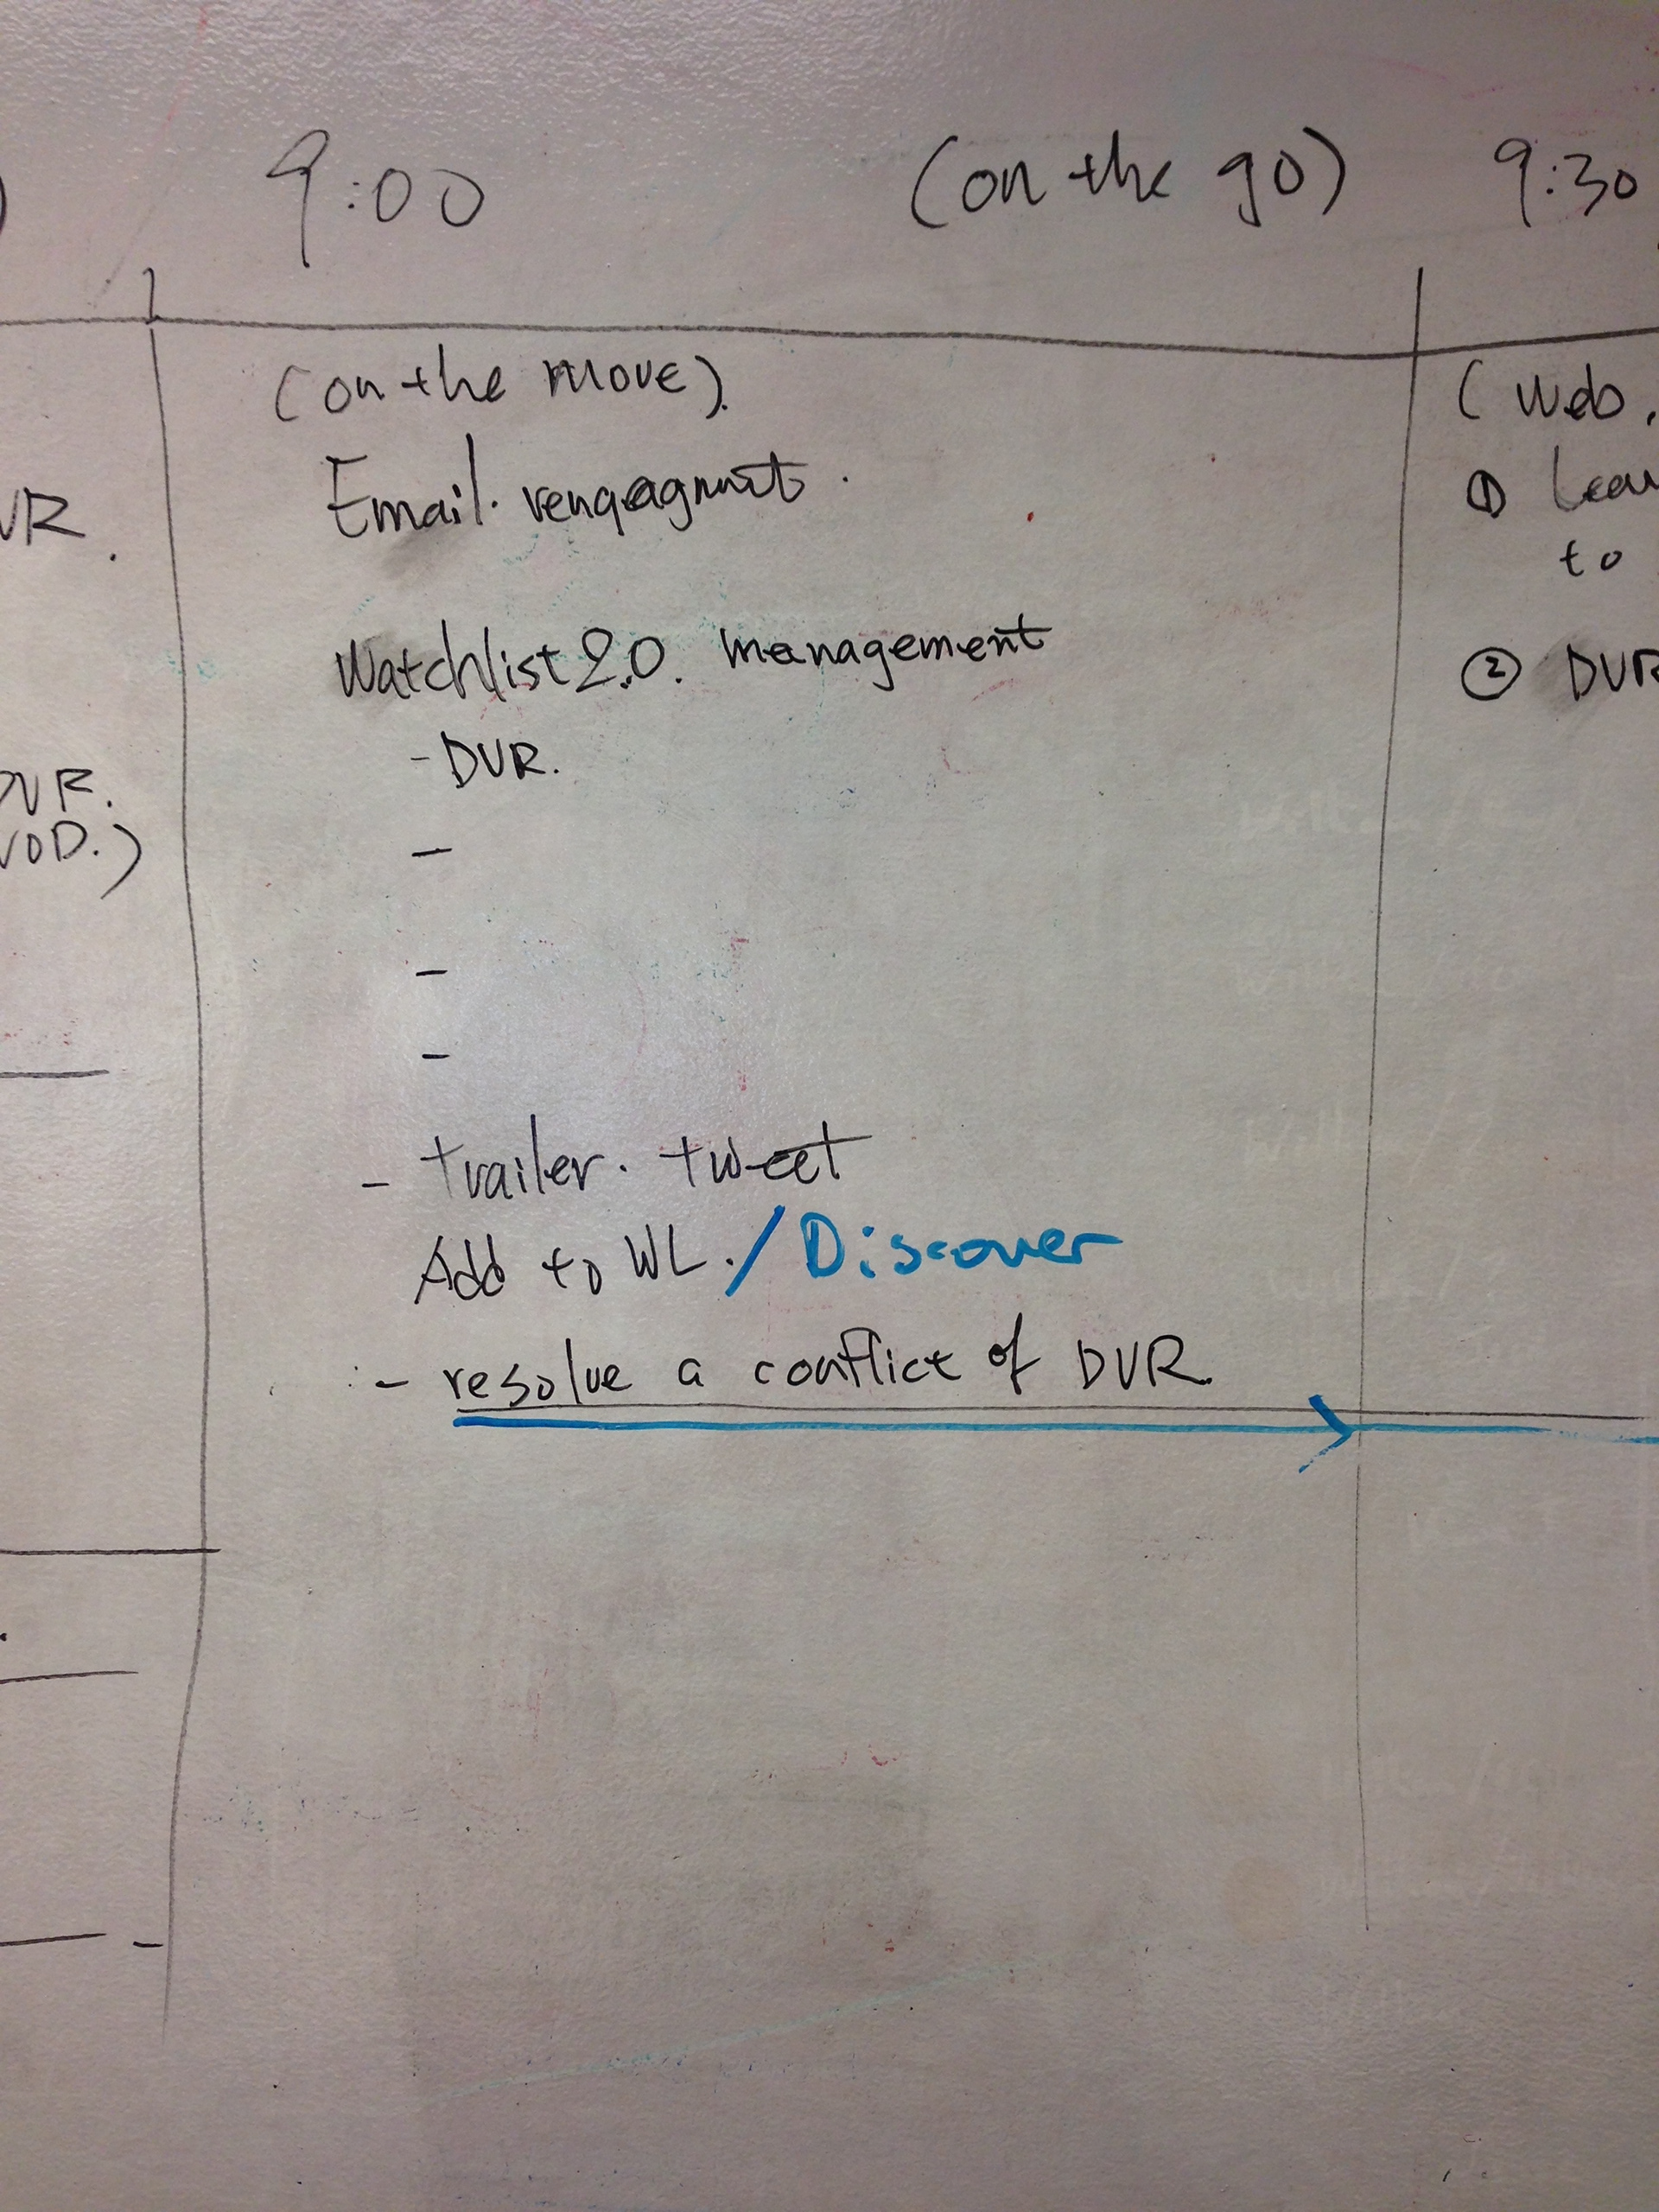 9:00 (on the go) 9:30
(on the move).
Email. renqagmnt.
Watchlist 2.0. management
- DVR.
-
-
-
- trailer. tweet
Add to WL. / Discover
- resolve a conflict of DVR.
VR.
DVR.
VOD.)
(Web.
① Lear
to
② DVR